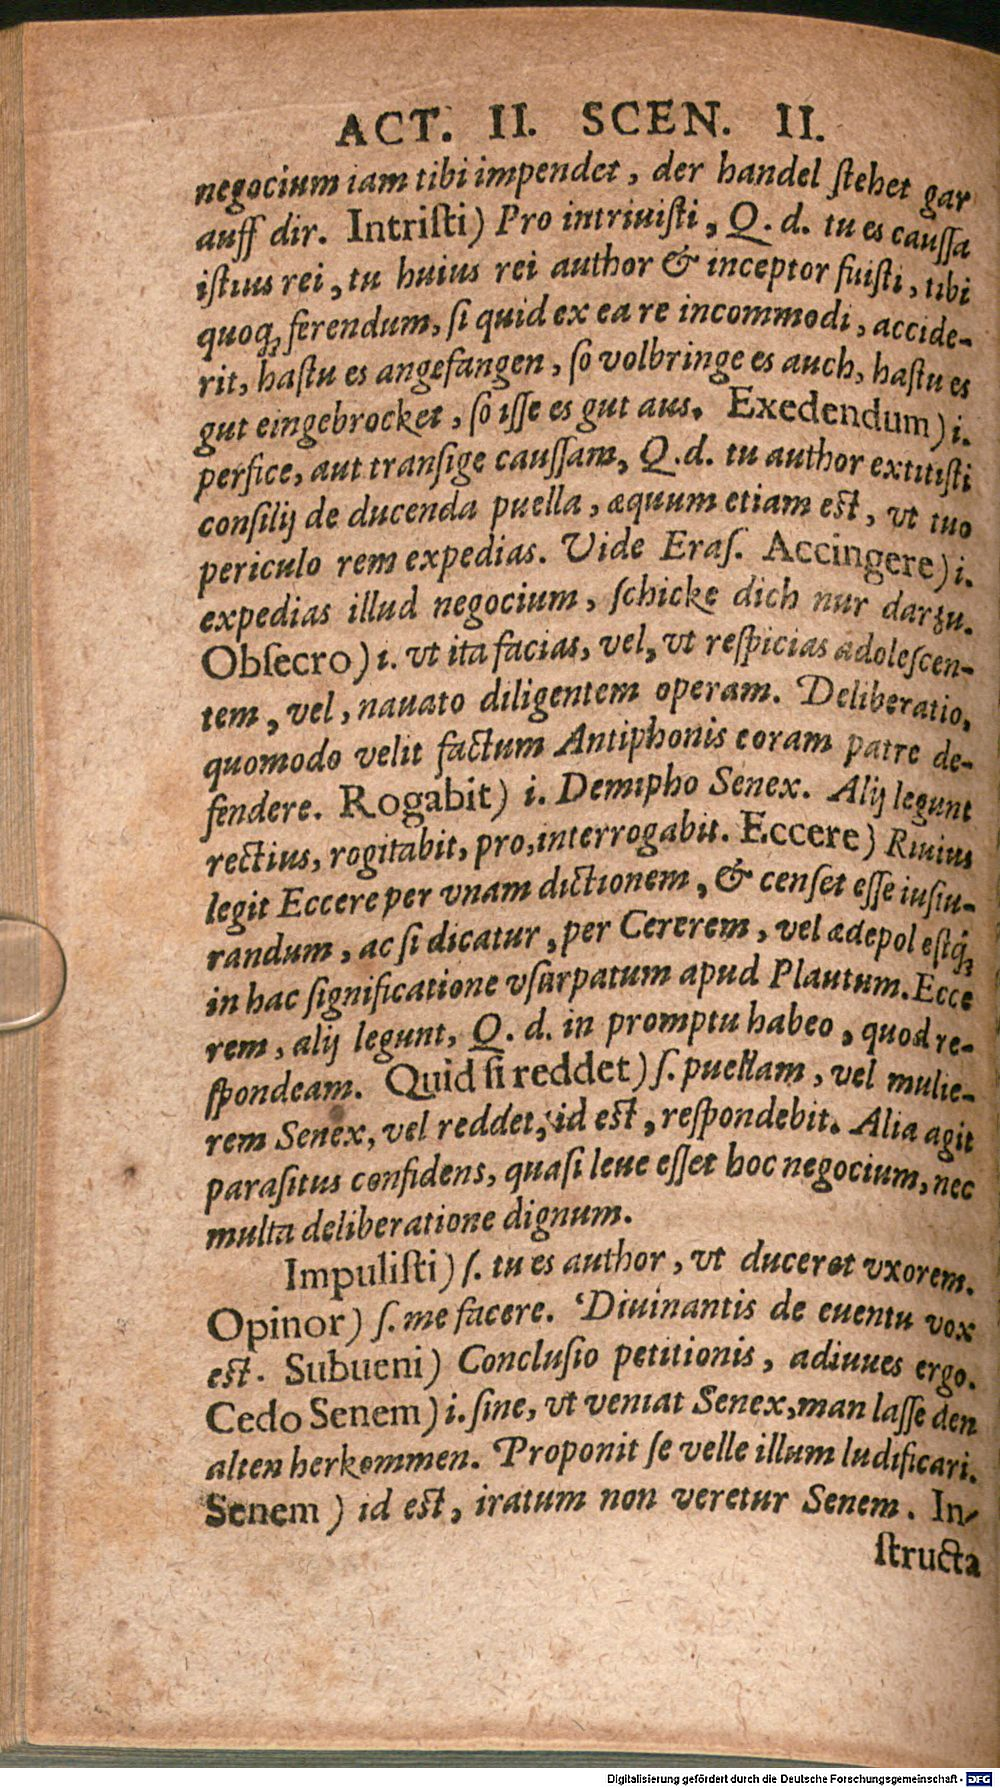 ACT. II. SCEN. II.
negocium iam tibi impendet, der handel ſtehet gar
auff dir. Intriſti) Pro intriuiſti, Q. d. tu es cauſſa
iſtius rei, tu huius rei author & inceptor fuiſti, tibi
quoq; ferendum, ſi quid ex ea re incommodi, accide-
rit, haſtu es angefangen, ſo volbringe es auch, haſtu es
gut eingebrocket, ſo iſſe es gut aus. Exedendum) i.
perfice, aut tranſige cauſſam, Q. d. tu author extitiſti
conſilij de ducenda puella, æquum etiam eſt, vt tuo
periculo rem expedias. Vide Eraſ. Accingere) i.
expedias illud negocium, ſchicke dich nur darzu.
Obſecro) i. vt ita facias, vel, vt reſpicias adoleſcen-
tem, vel, nauato diligentem operam. Deliberatio,
quomodo velit factum Antiphonis coram patre de-
fendere. Rogabit) i. Demipho Senex. Alij legunt
rectius, rogitabit, pro, interrogabit. Eccere) Riuius
legit Eccere per vnam dictionem, & cenſet eſſe iuſiu-
randum, ac ſi dicatur, per Cererem, vel ædepol eſtq́;
in hac ſignificatione vſurpatum apud Plautum. Ecce
rem, alij legunt, Q. d. in promptu habeo, quod re-
ſpondeam. Quid ſi reddet) ſ. puellam, vel mulie-
rem Senex, vel reddet, id eſt, reſpondebit. Alia agit
paraſitus confidens, quaſi leue eſſet hoc negocium, nec
multa deliberatione dignum.
Impuliſti) ſ. tu es author, vt duceret vxorem.
Opinor) ſ. me facere. Diuinantis de euentu vox
eſt. Subueni) Concluſio petitionis, adiuues ergo.
Cedo Senem) i. ſine, vt veniat Senex, man laſſe den
alten herkommen. Proponit ſe velle illum ludificari.
Senem) id eſt, iratum non veretur Senem. In-
ſtructa
Digitalisierung gefördert durch die Deutsche Forschungsgemeinschaft - DFG